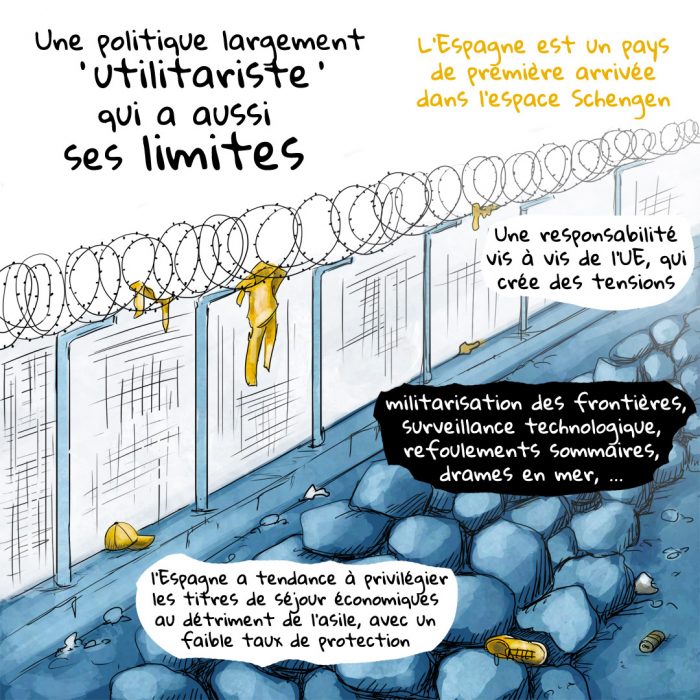 Une politique largement
'utilitariste'
qui a aussi
ses limites
L'Espagne est un pays
de première arrivée
dans l'espace Schengen
Une responsabilité
vis à vis de l'UE, qui
crée des tensions
militarisation des frontières,
surveillance technologique,
refoulements sommaires,
drames en mer, ...
l'Espagne a tendance à privilégier
les titres de séjour économiques
au détriment de l'asile, avec un
faible taux de protection